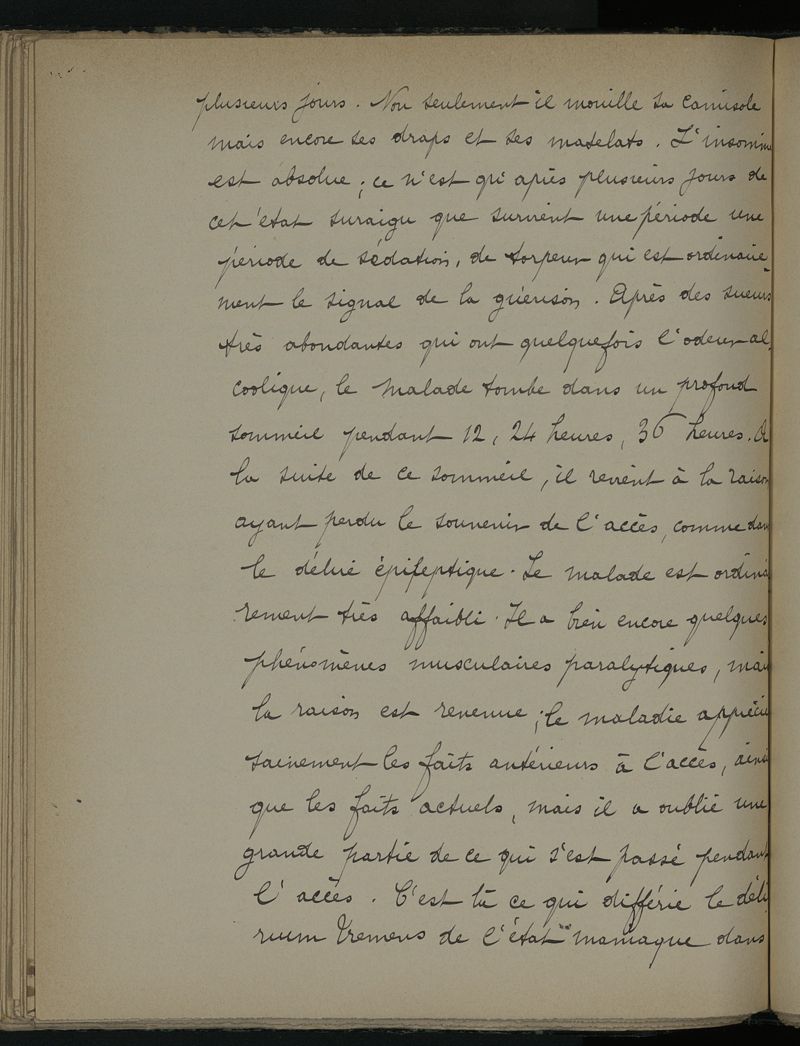 plusieurs jours. Non seulement il mouille sa camisole
mais encore ses draps et ses matelats. L'insomnie
est absolue; ce n'est qu'après plusieurs jours de
cet état suraigu que survient une période une
période de sédation, de torpeur qui est ordinaire-
ment le signal de la guérison. Après des sueurs
très abondantes qui ont quelquefois l'odeur al-
coolique, le malade tombe dans un profond
sommeil pendant 12, 24 heures, 36 heures. A
la suite de ce sommeil, il revient à la raison
ayant perdu le souvenir de l'accès, comme dans
le délire épileptique. Le malade est ordinai
rement très affaibli. Il a bien encore quelques
phénomènes musculaires paralytiques, mais
la raison est revenue; le maladie apprécie
sainement les faits antérieurs à l'accès, ainsi
que les faits actuels, mais il a oublié une
grande partie de ce qui s'est passé pendant
l'accès. C'est là ce qui différie le déli
rium tremens de l'état maniaque dans